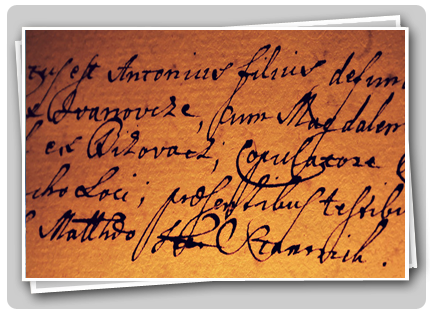 est Antonius filius defun
Ivanovicze, cum Magdalem
ex Bizovacz; Copulatore
Loci; præsentibus testibu
Mattheo Stanovich.